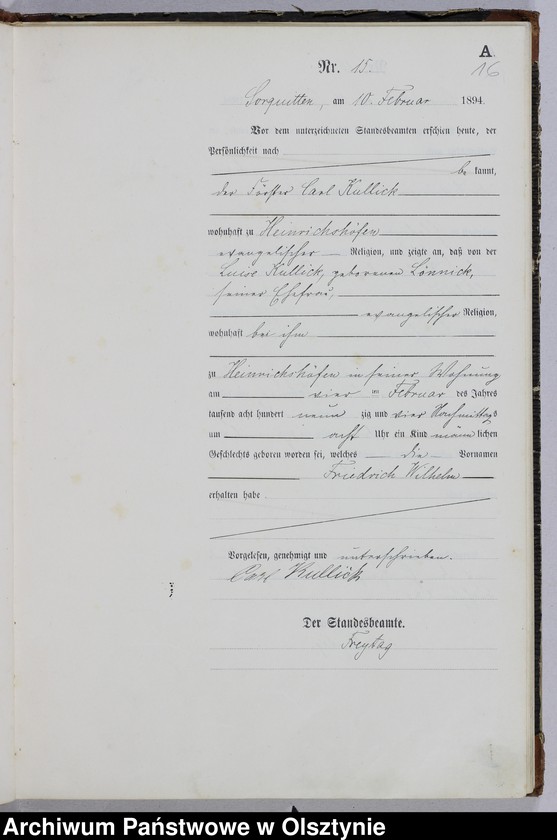 A
16
Nr. 15.
Sorquitten, am 10. Februar 1894.
Vor dem unterzeichneten Standesbeamten erschien heute, der
Persönlichkeit nach
be kannt,
der Förster Carl Kullick
wohnhaft zu Heinrichshöfen
evangelischer Religion, und zeigte an, daß von der
Luise Kullick, geborenen Lönnick,
seiner Ehefrau,
evangelischer Religion,
wohnhaft bei ihm
zu Heinrichshöfen in seiner Wohnung
am vier ten Februar des Jahres
tausend acht hundert neun zig und vier Nachmittags
um acht Uhr ein Kind männ lichen
Geschlechts geboren worden sei, welches die Vornamen
Friedrich Wilhelm
erhalten habe
Vorgelesen, genehmigt und unterschrieben.
Carl Kullick
Der Standesbeamte.
Freytag
Archiwum Państwowe w Olsztynie